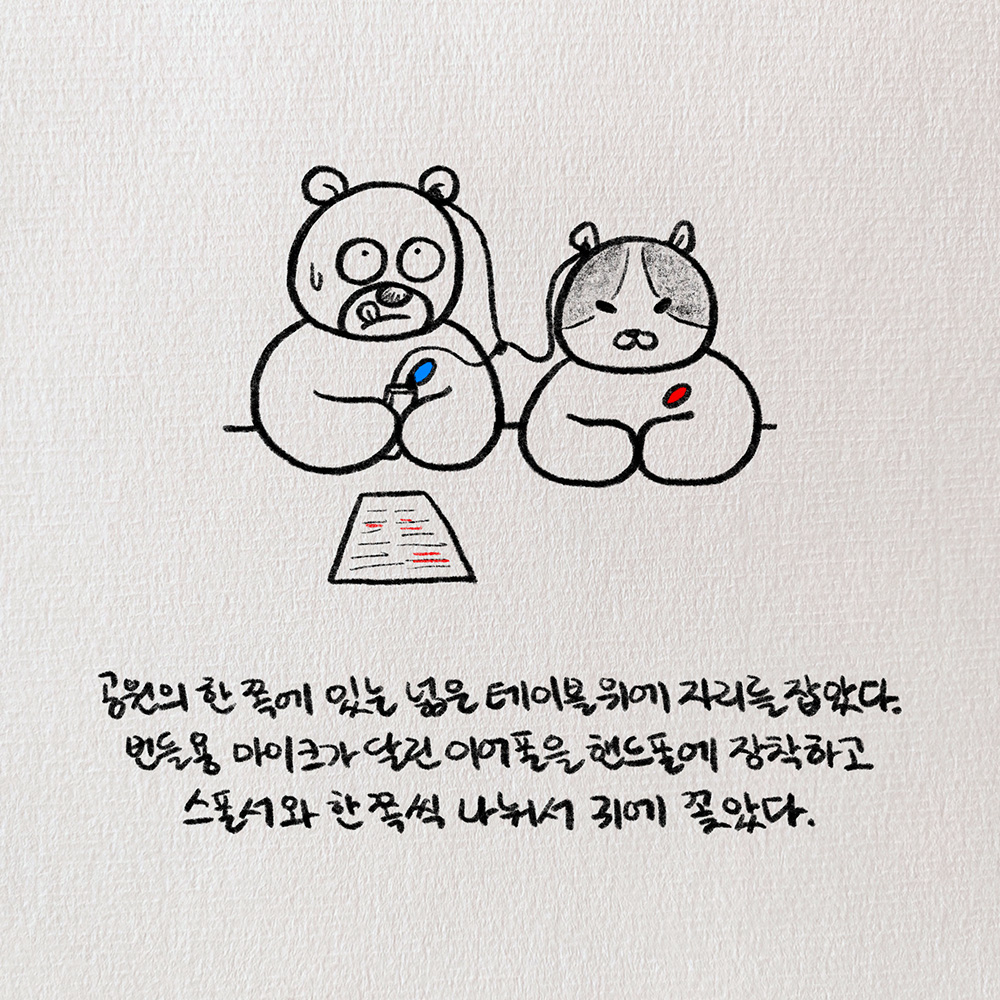 공원의 한 쪽에 있는 넓은 테이블 위에 자리를 잡았다.
번들용 마이크가 달린 이어폰을 핸드폰에 장착하고
스폰서와 한 쪽씩 나눠서 귀에 꽂았다.